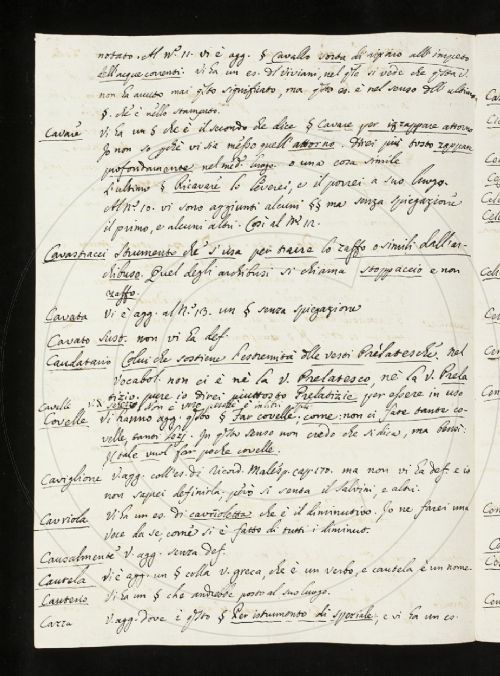 notato. Al nº. 11. vi è agg. § Cavallo sorta di riparo all'impeto
dell'acque correnti. Vi ha un es. del Viviani, nel qle si vede che qsta v.
non ha avuto mai qsto significato, ma qsto es. è nel senso dell'ultimo
§. che è nello stampato.
Cavare Vi ha un § che è il secondo che dice § Cavare per izzappare attorno
Io non so pchè vi sia messo quell'attorno. Direi più tosto zappare
profondamente nel med. luogo. o una cosa simile
L'ultimo § Ricavare lo leverei, e il porrei a suo luogo.
Al Nº. 10. vi sono aggiunti alcuni §§ ma senza spiegazione
il primo, e alcuni altri. Così al Nº 12.
Cavastracci Strumento che si usa per trarre lo zaffo o simili dall'ar-
chibuso. Quel degli archibusi si chiama stoppaccio e non
zaffo.
Cavata Vi è agg. al Nº. 13. un § senza spiegazione
Cavato Sust. non vi ha def.
Caudatario Colui che sostiene l'estremità delle vesti Prelatesche. Nel
Vocabol. non ci è nè la v. Prelatesco, nè la v. Prela
tizio. pure io direi piuttosto Prelatizie per essere in uso
Cavelle
Covelle. Vi hanno agg. qsto § Far covelle; come: non ci fare tanta co-
velle, tanti In qsto senso non credo che si dica, ma bensì:
vuol far poche covelle.
Caviglione V. agg. coll'es. di Ricord. Malesp. cap. 170. ma non vi ha def. e io
non saprei definirla; però si senta il Salvini, e altri.
Cavriola Vi ha un es. di cavrioletta che è il diminutivo. Io ne farei una
voce da se, come si è fatto di tutti i diminut.
Causalmente V. agg. senza def.
Cautela Vi è agg. un § colla v. greca, che è un verbo, e cautela è un nome.
Cauterio Vi ha un § che andrebbe posto al suo luogo.
Cazza V. agg. dove è qsto § Per istrumento di speziale, e vi ha un es.